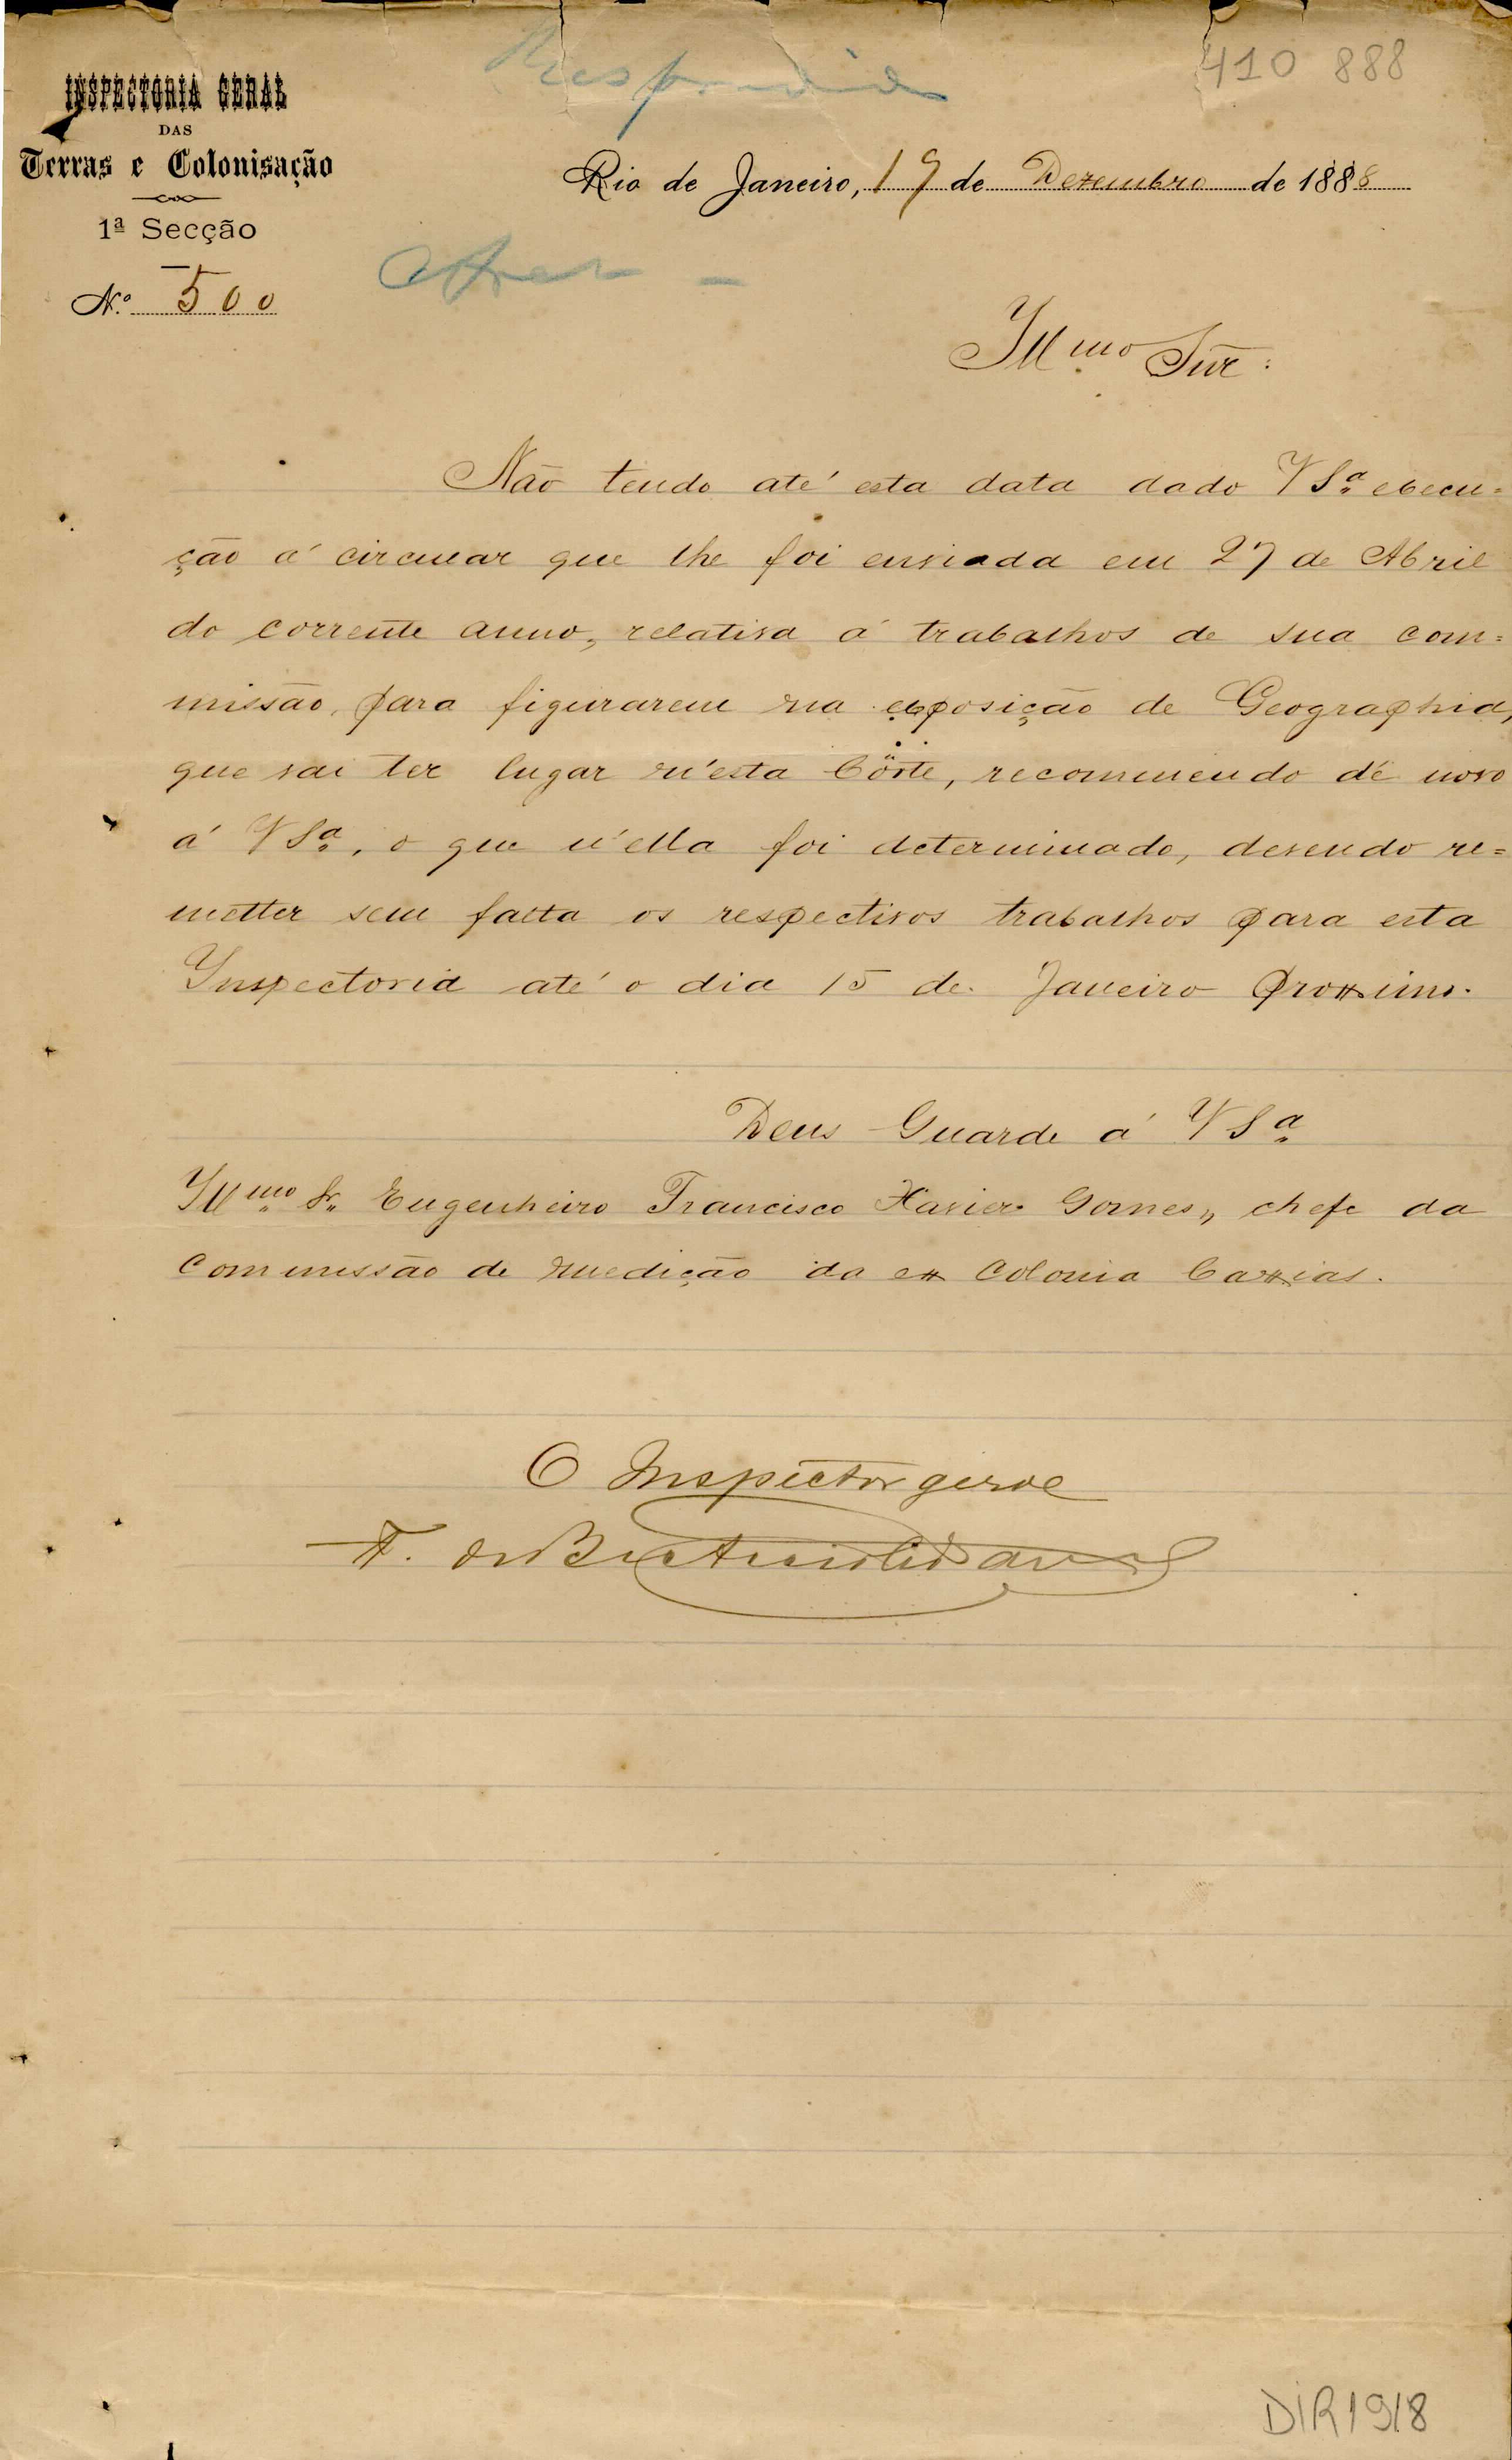 Respondido
410 888
INSPECTORIA GERAL
DAS
Terras e Colonisação
1ª Secção
Nº 500
Rio de Janeiro, 19 de Dezembro de 1888
Illmo Snr:
Não tendo até esta data dado V Sª execu=
ção á circular que lhe foi enviada em 27 de Abril
do corrente anno, relativa á trabalhos de sua com=
missão, para figurarem na exposição de Geographia,
que vai ter lugar n'esta Côrte, recommendo de novo
á V Sª, o que n'ella foi determinado, devendo re=
metter sem falta os respectivos trabalhos para esta
Inspectoria até o dia 15 de Janeiro proximo.
Deus Guarde á V Sª
Illmo Sr. Engenheiro Francisco Xavier Gomes, chefe da
Commissão de medição da ex Colonia Caxias.
O Inspector geral
F. de
DIR1918